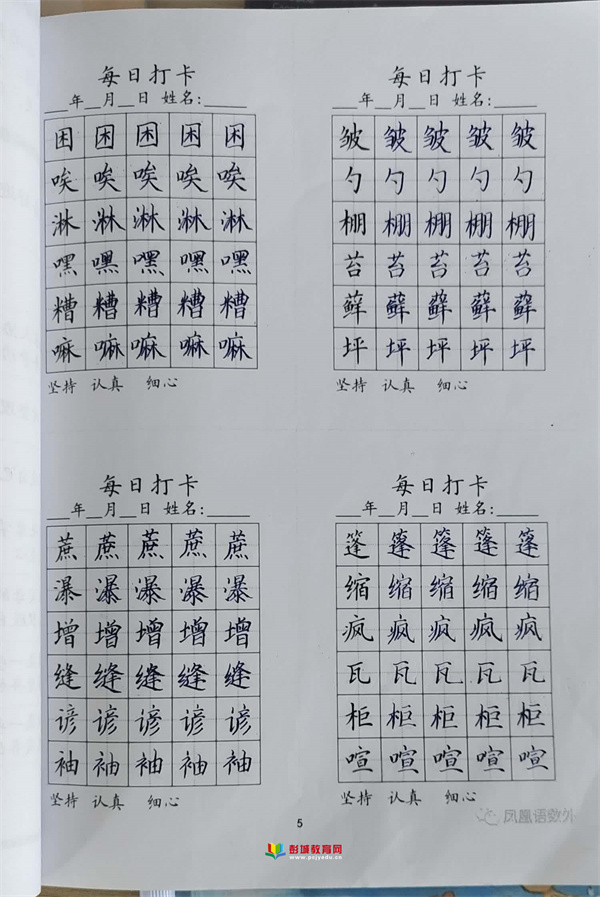 每日打卡
__年__月__日 姓名:____
困 困 困 困 困
唉 唉 唉 唉 唉
淋 淋 淋 淋 淋
嘿 嘿 嘿 嘿 嘿
糟 糟 糟 糟 糟
嘛 嘛 嘛 嘛 嘛
坚持 认真 细心
每日打卡
__年__月__日 姓名:____
皱 皱 皱 皱 皱
勺 勺 勺 勺 勺
棚 棚 棚 棚 棚
苔 苔 苔 苔 苔
藓 藓 藓 藓 藓
坪 坪 坪 坪 坪
坚持 认真 细心
每日打卡
__年__月__日 姓名:____
蔗 蔗 蔗 蔗 蔗
瀑 瀑 瀑 瀑 瀑
增 增 增 增 增
缝 缝 缝 缝 缝
谚 谚 谚 谚 谚
袖 袖 袖 袖 袖
坚持 认真 细心
每日打卡
__年__月__日 姓名:____
篷 篷 篷 篷 篷
缩 缩 缩 缩 缩
疯 疯 疯 疯 疯
瓦 瓦 瓦 瓦 瓦
柜 柜 柜 柜 柜
喧 喧 喧 喧 喧
坚持 认真 细心
凤凰语数外
5
彭城教育网
www.pcjyedu.cn